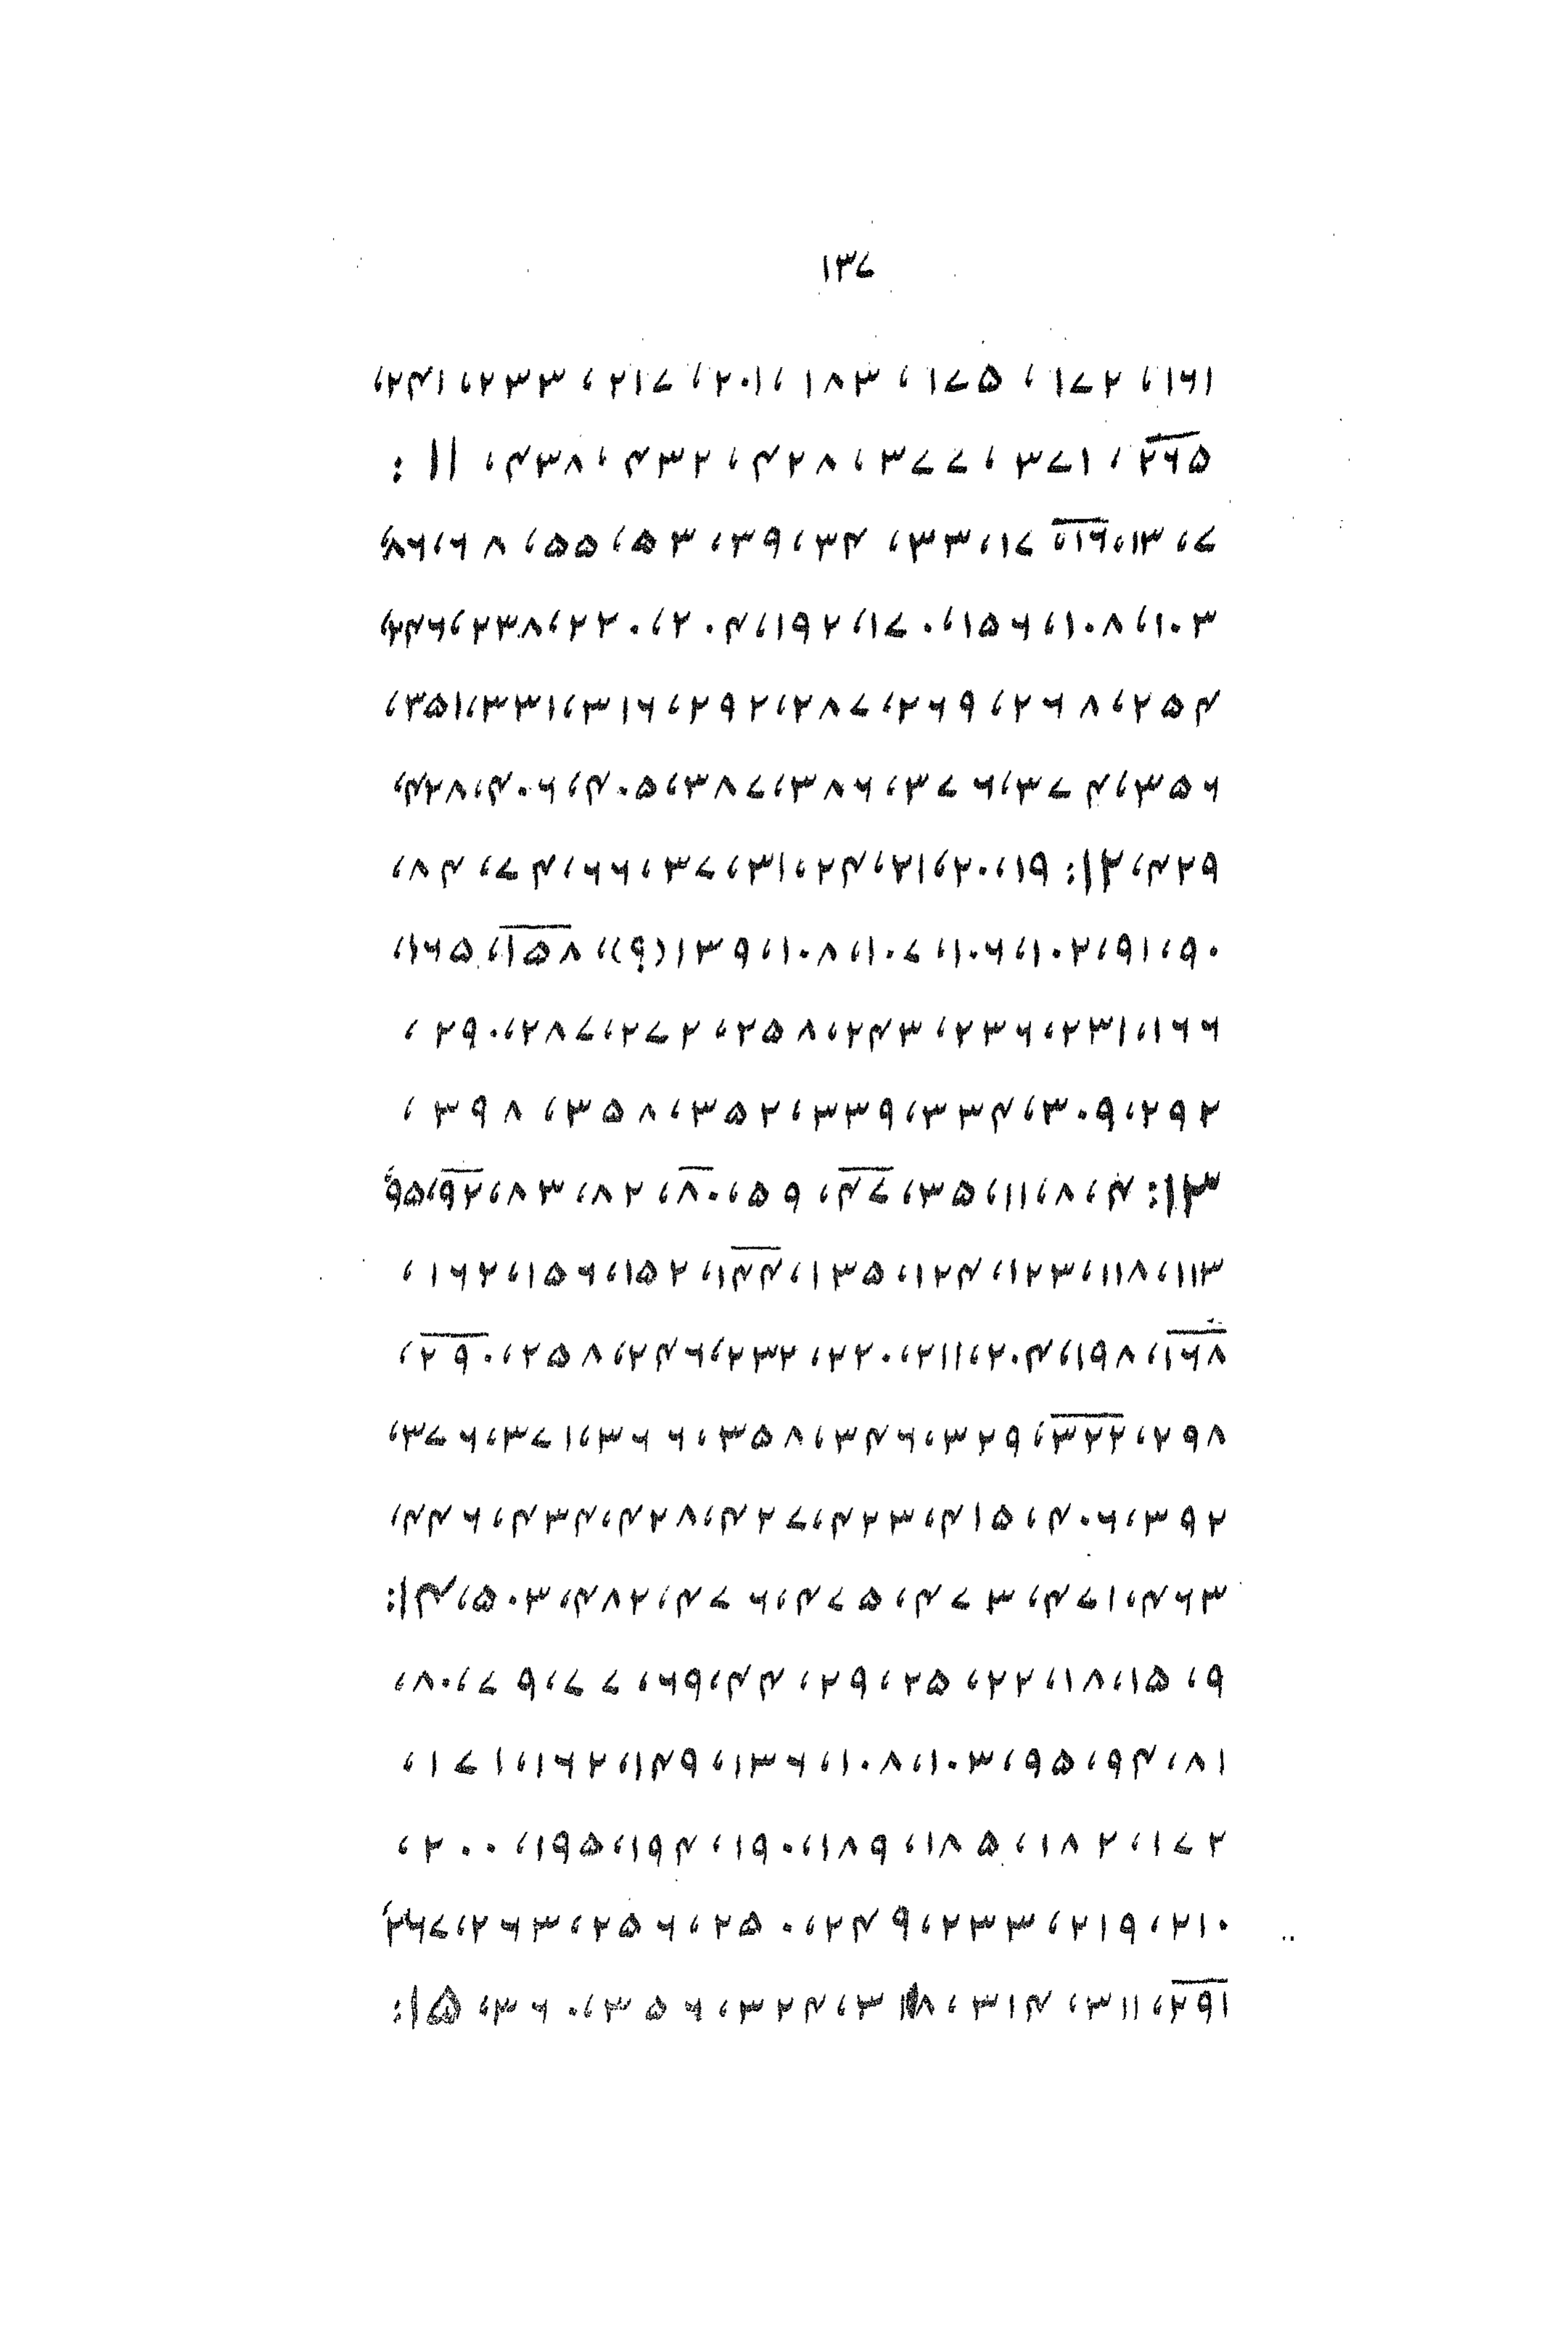 ۱۳۷
۱۶۱، ۱۷۲، ۱۷۵، ۱۸۳، ۲۰۱، ۲۱۷، ۲۳۳، ۲۴۱،
۲۶۵، ۳۷۱، ۳۷۷، ۴۲۸، ۴۳۲، ۴۳۸، ۱۱:
۷، ۱۳، ۱۶، ۱۷، ۳۳، ۳۴، ۳۹، ۵۳، ۵۵، ۶۸، ۸۶،
۱۰۳، ۱۰۸، ۱۵۶، ۱۷۰، ۱۹۲، ۲۰۴، ۲۲۰، ۲۳۸، ۲۴۶،
۲۵۴، ۲۶۸، ۲۶۹، ۲۸۷، ۲۹۲، ۳۱۶، ۳۳۱، ۳۵۱،
۳۵۶، ۳۷۴، ۳۷۶، ۳۸۶، ۳۸۷، ۴۰۵، ۴۰۶، ۴۲۸،
۴۲۹، ۱۲: ۱۹، ۲۰، ۲۱، ۲۴، ۳۱، ۳۷، ۶۶، ۷۴، ۸۴،
۹۰، ۹۱، ۱۰۲، ۱۰۶، ۱۰۷، ۱۰۸، ۱۳۹(؟)، ۱۵۸، ۱۶۵،
۱۶۶، ۲۳۱، ۲۳۶، ۲۴۳، ۲۵۸، ۲۷۲، ۲۸۷، ۲۹۰،
۲۹۲، ۳۰۹، ۳۳۴، ۳۳۹، ۳۵۲، ۳۵۸، ۳۹۸،
۱۳: ۴، ۸، ۱۱، ۳۵، ۴۷، ۵۹، ۸۰، ۸۲، ۸۳، ۹۲، ۹۵،
۱۱۳، ۱۱۸، ۱۲۳، ۱۲۴، ۱۳۵، ۱۴۴، ۱۵۲، ۱۵۶، ۱۶۲،
۱۶۸، ۱۹۸، ۲۰۴، ۲۱۱، ۲۲۰، ۲۳۲، ۲۴۶، ۲۵۸، ۲۹۰،
۲۹۸، ۳۲۲، ۳۲۹، ۳۴۶، ۳۵۸، ۳۶۶، ۳۷۱، ۳۷۶،
۳۹۲، ۴۰۶، ۴۱۵، ۴۲۳، ۴۲۷، ۴۲۸، ۴۳۴، ۴۴۶،
۴۶۳، ۴۷۱، ۴۷۳، ۴۷۵، ۴۷۶، ۴۸۲، ۵۰۳، ۱۴:
۹، ۱۵، ۱۸، ۲۲، ۲۵، ۲۹، ۴۴، ۶۹، ۷۷، ۷۹، ۸۰،
۸۱، ۹۴، ۹۵، ۱۰۳، ۱۰۸، ۱۳۶، ۱۴۹، ۱۶۲، ۱۷۱،
۱۷۲، ۱۸۲، ۱۸۵، ۱۸۹، ۱۹۰، ۱۹۴، ۱۹۵، ۲۰۰،
۲۱۰، ۲۱۹، ۲۳۳، ۲۴۹، ۲۵۰، ۲۵۶، ۲۶۳، ۲۶۷،
۲۹۱، ۳۱۱، ۳۱۴، ۳۱۸، ۳۲۴، ۳۵۶، ۳۶۰، ۱۵: